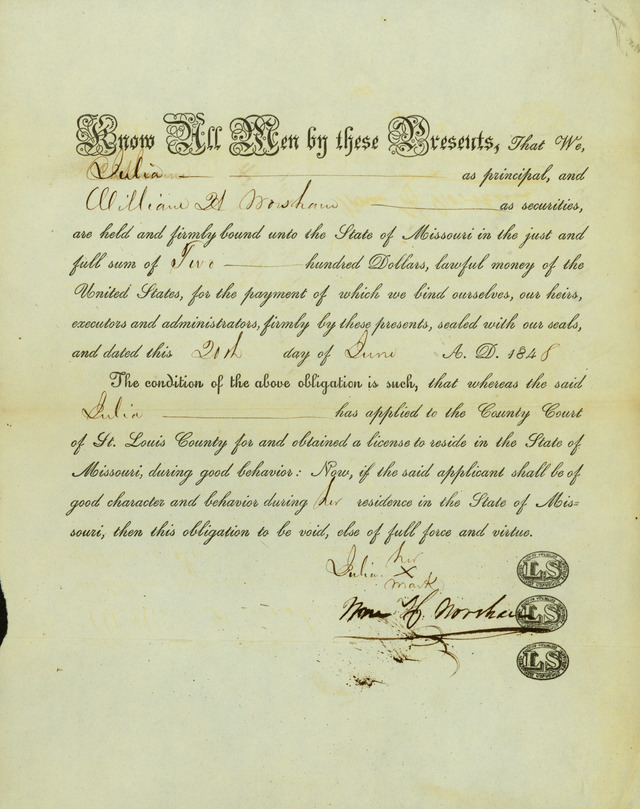 Know All Men by these Presents, That We,
Julia as principal, and
William H Worsham as securities,
are held and firmly bound unto the State of Missouri in the just and
full sum of Five hundred Dollars, lawful money of the
United States, for the payment of which we bind ourselves, our heirs,
executors and administrators, firmly by these presents, sealed with our seals,
and dated this 20th day of June A. D. 1848
The condition of the above obligation is such, that whereas the said
Julia has applied to the County Court
of St. Louis County for and obtained a license to reside in the State of
Missouri, during good behavior: Now, if the said applicant shall be of
good character and behavior during her residence in the State of Mis=
souri, then this obligation to be void, else of full force and virtue.
her
Julia X LS
mark
Wm H. Worsham LS
LS